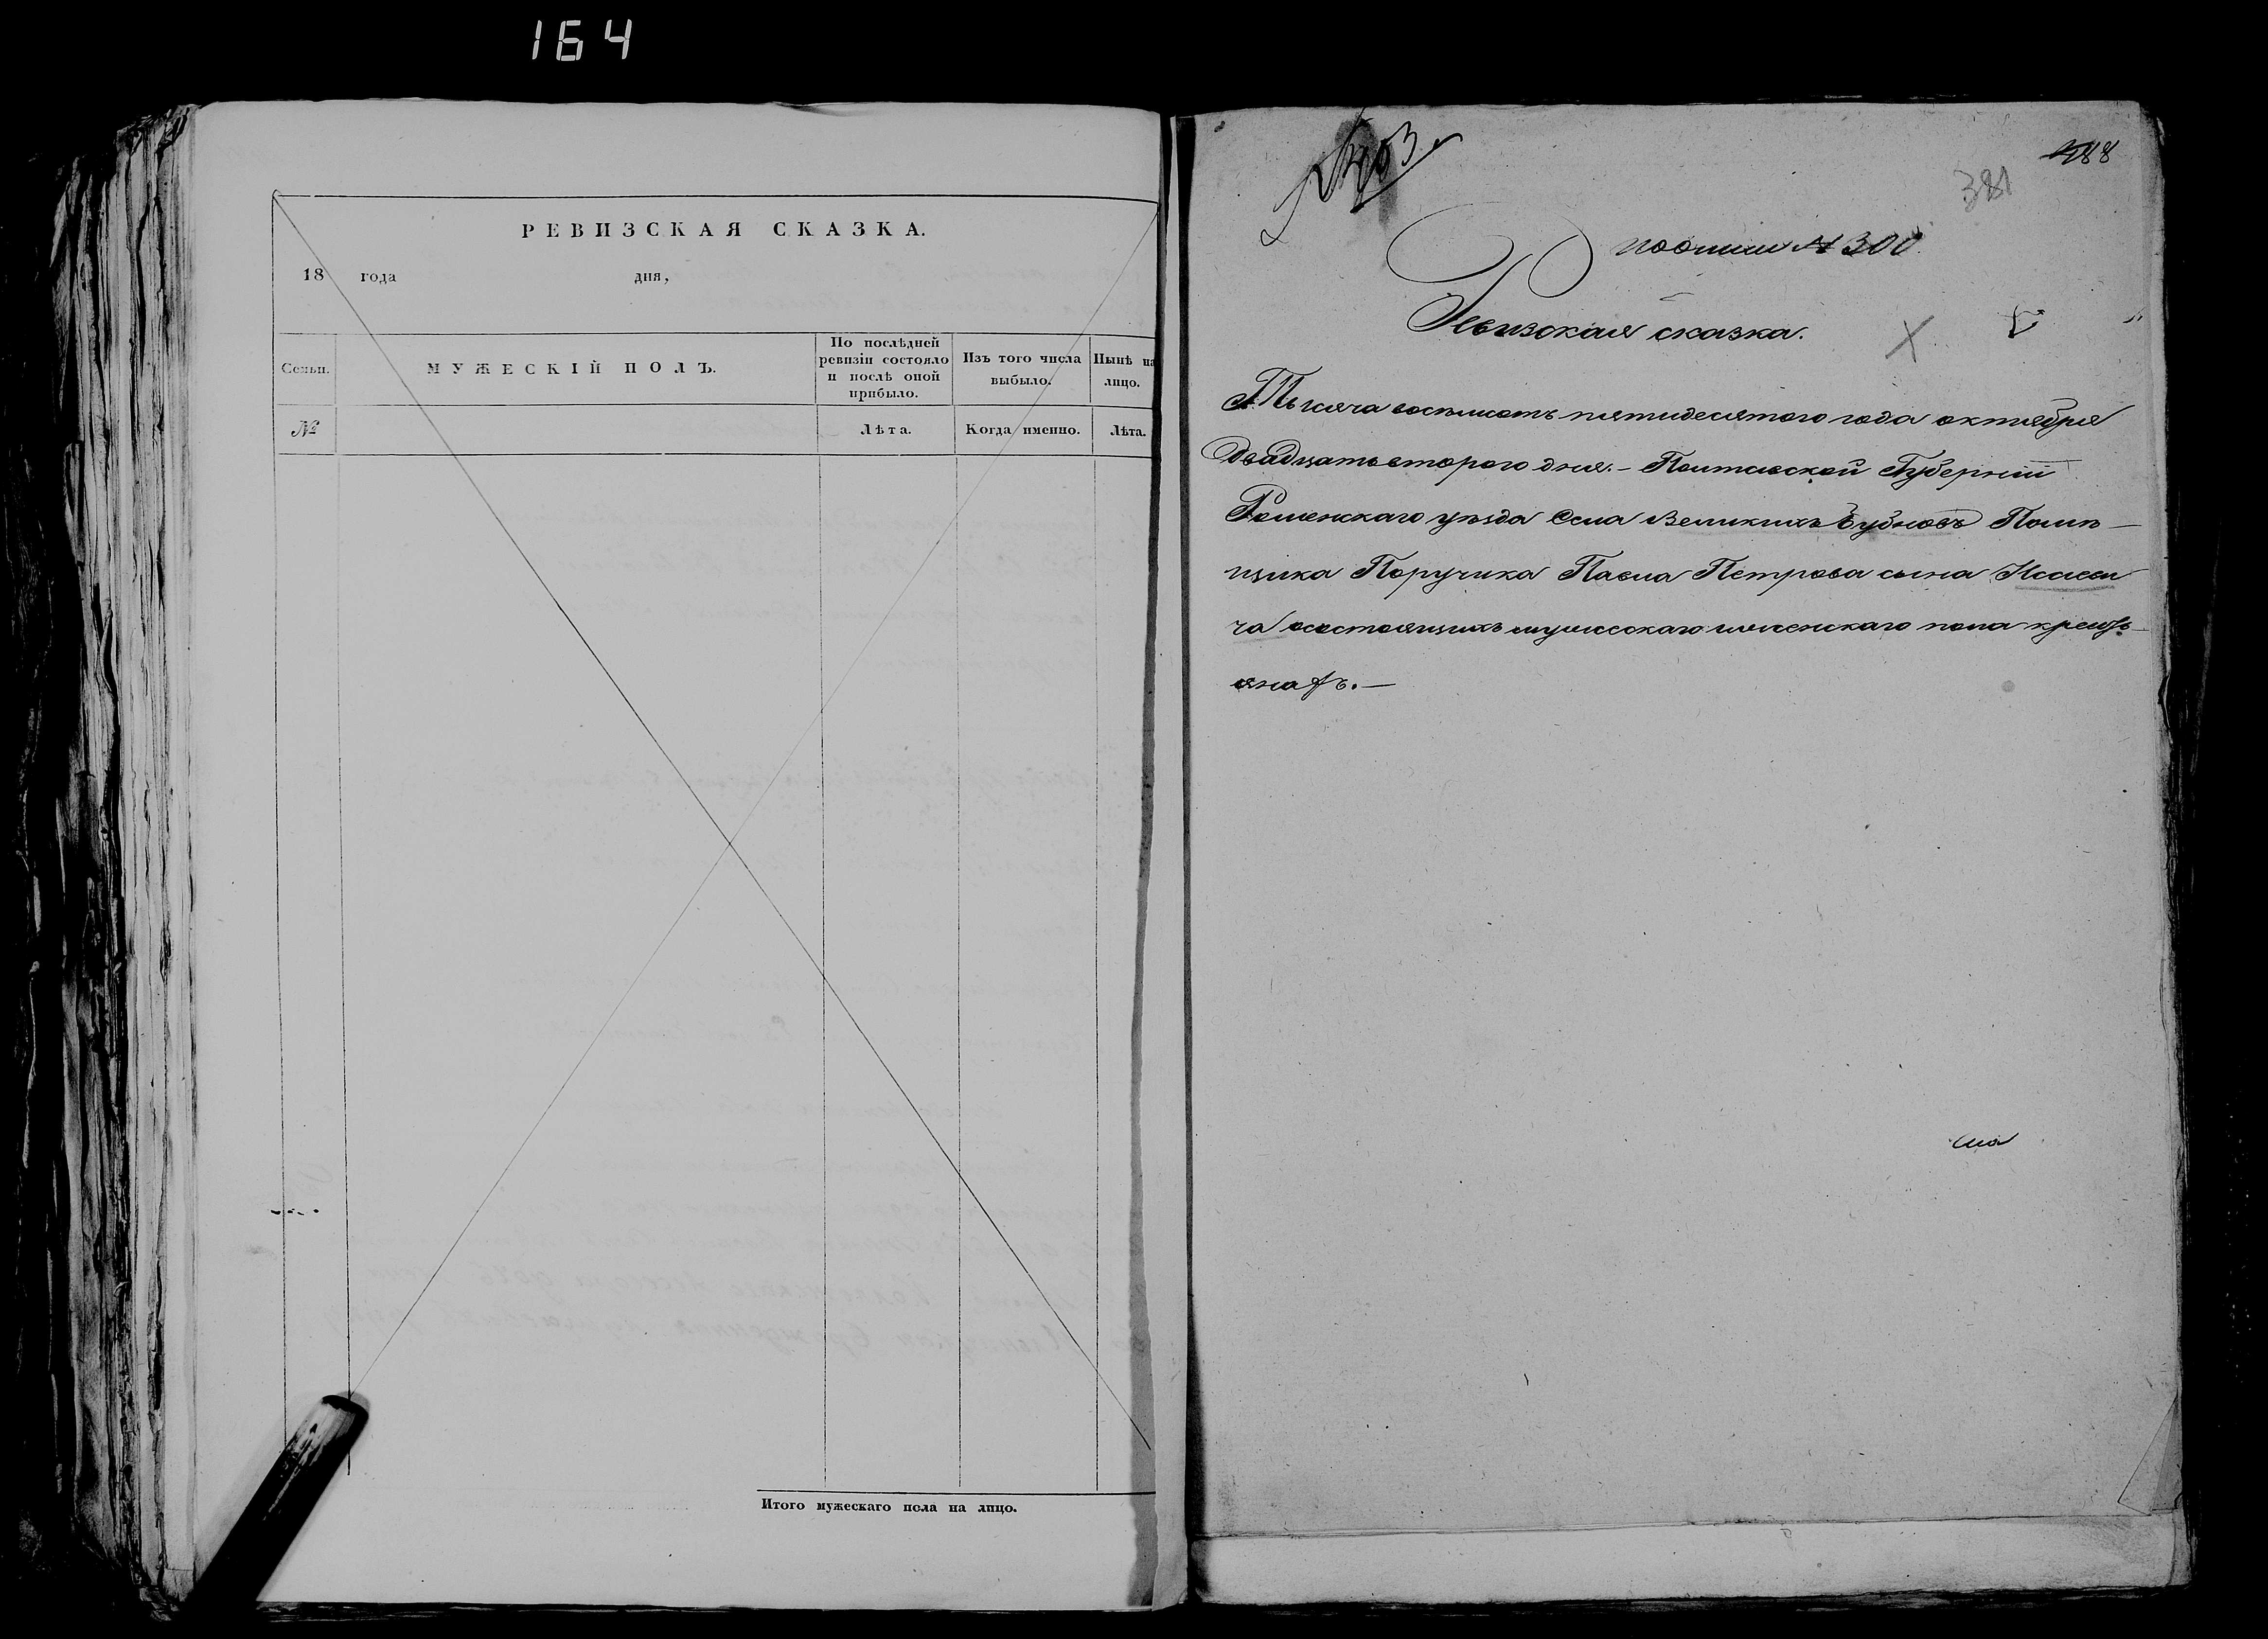 164
РЕВИЗСКАЯ СКАЗКА.
18 года дня,
Семьи.
МУЖЕСКІЙ ПОЛЪ.
По послѣдней
ревизіи состояло
и послѣ оной
прибыло.
Изъ того числа
выбыло.
Нынѣ на
лицо.
№
Лѣта.
Когда именно.
Лѣта.
Итого мужескаго пола на лицо.
488
381
№ 300
Ревизская сказка.
Тысяча восемьсотъ пятидесятого года октября
двадцать второго дня. – Полтавской Губерніи
Роменскаго уѣзда Села Великихъ Бубновъ Помѣ-
щика Поручика Павла Петрова сына Исаеви
ча осостоящихъ мужескаго иженскаго пола кресть
янахъ. —